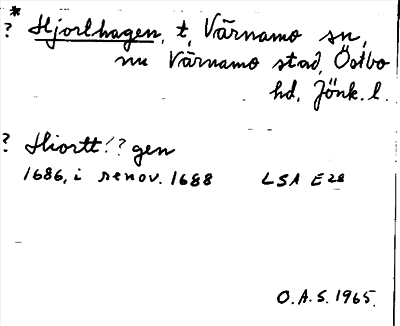 * ? Hjorthagen, t, Värnamo sn,
nu Värnamo stad, Östbo
hd, Jönk. l.
? Hiortt!?gen
1686, i renov. 1688 LSA E28
O.A.S. 1965.